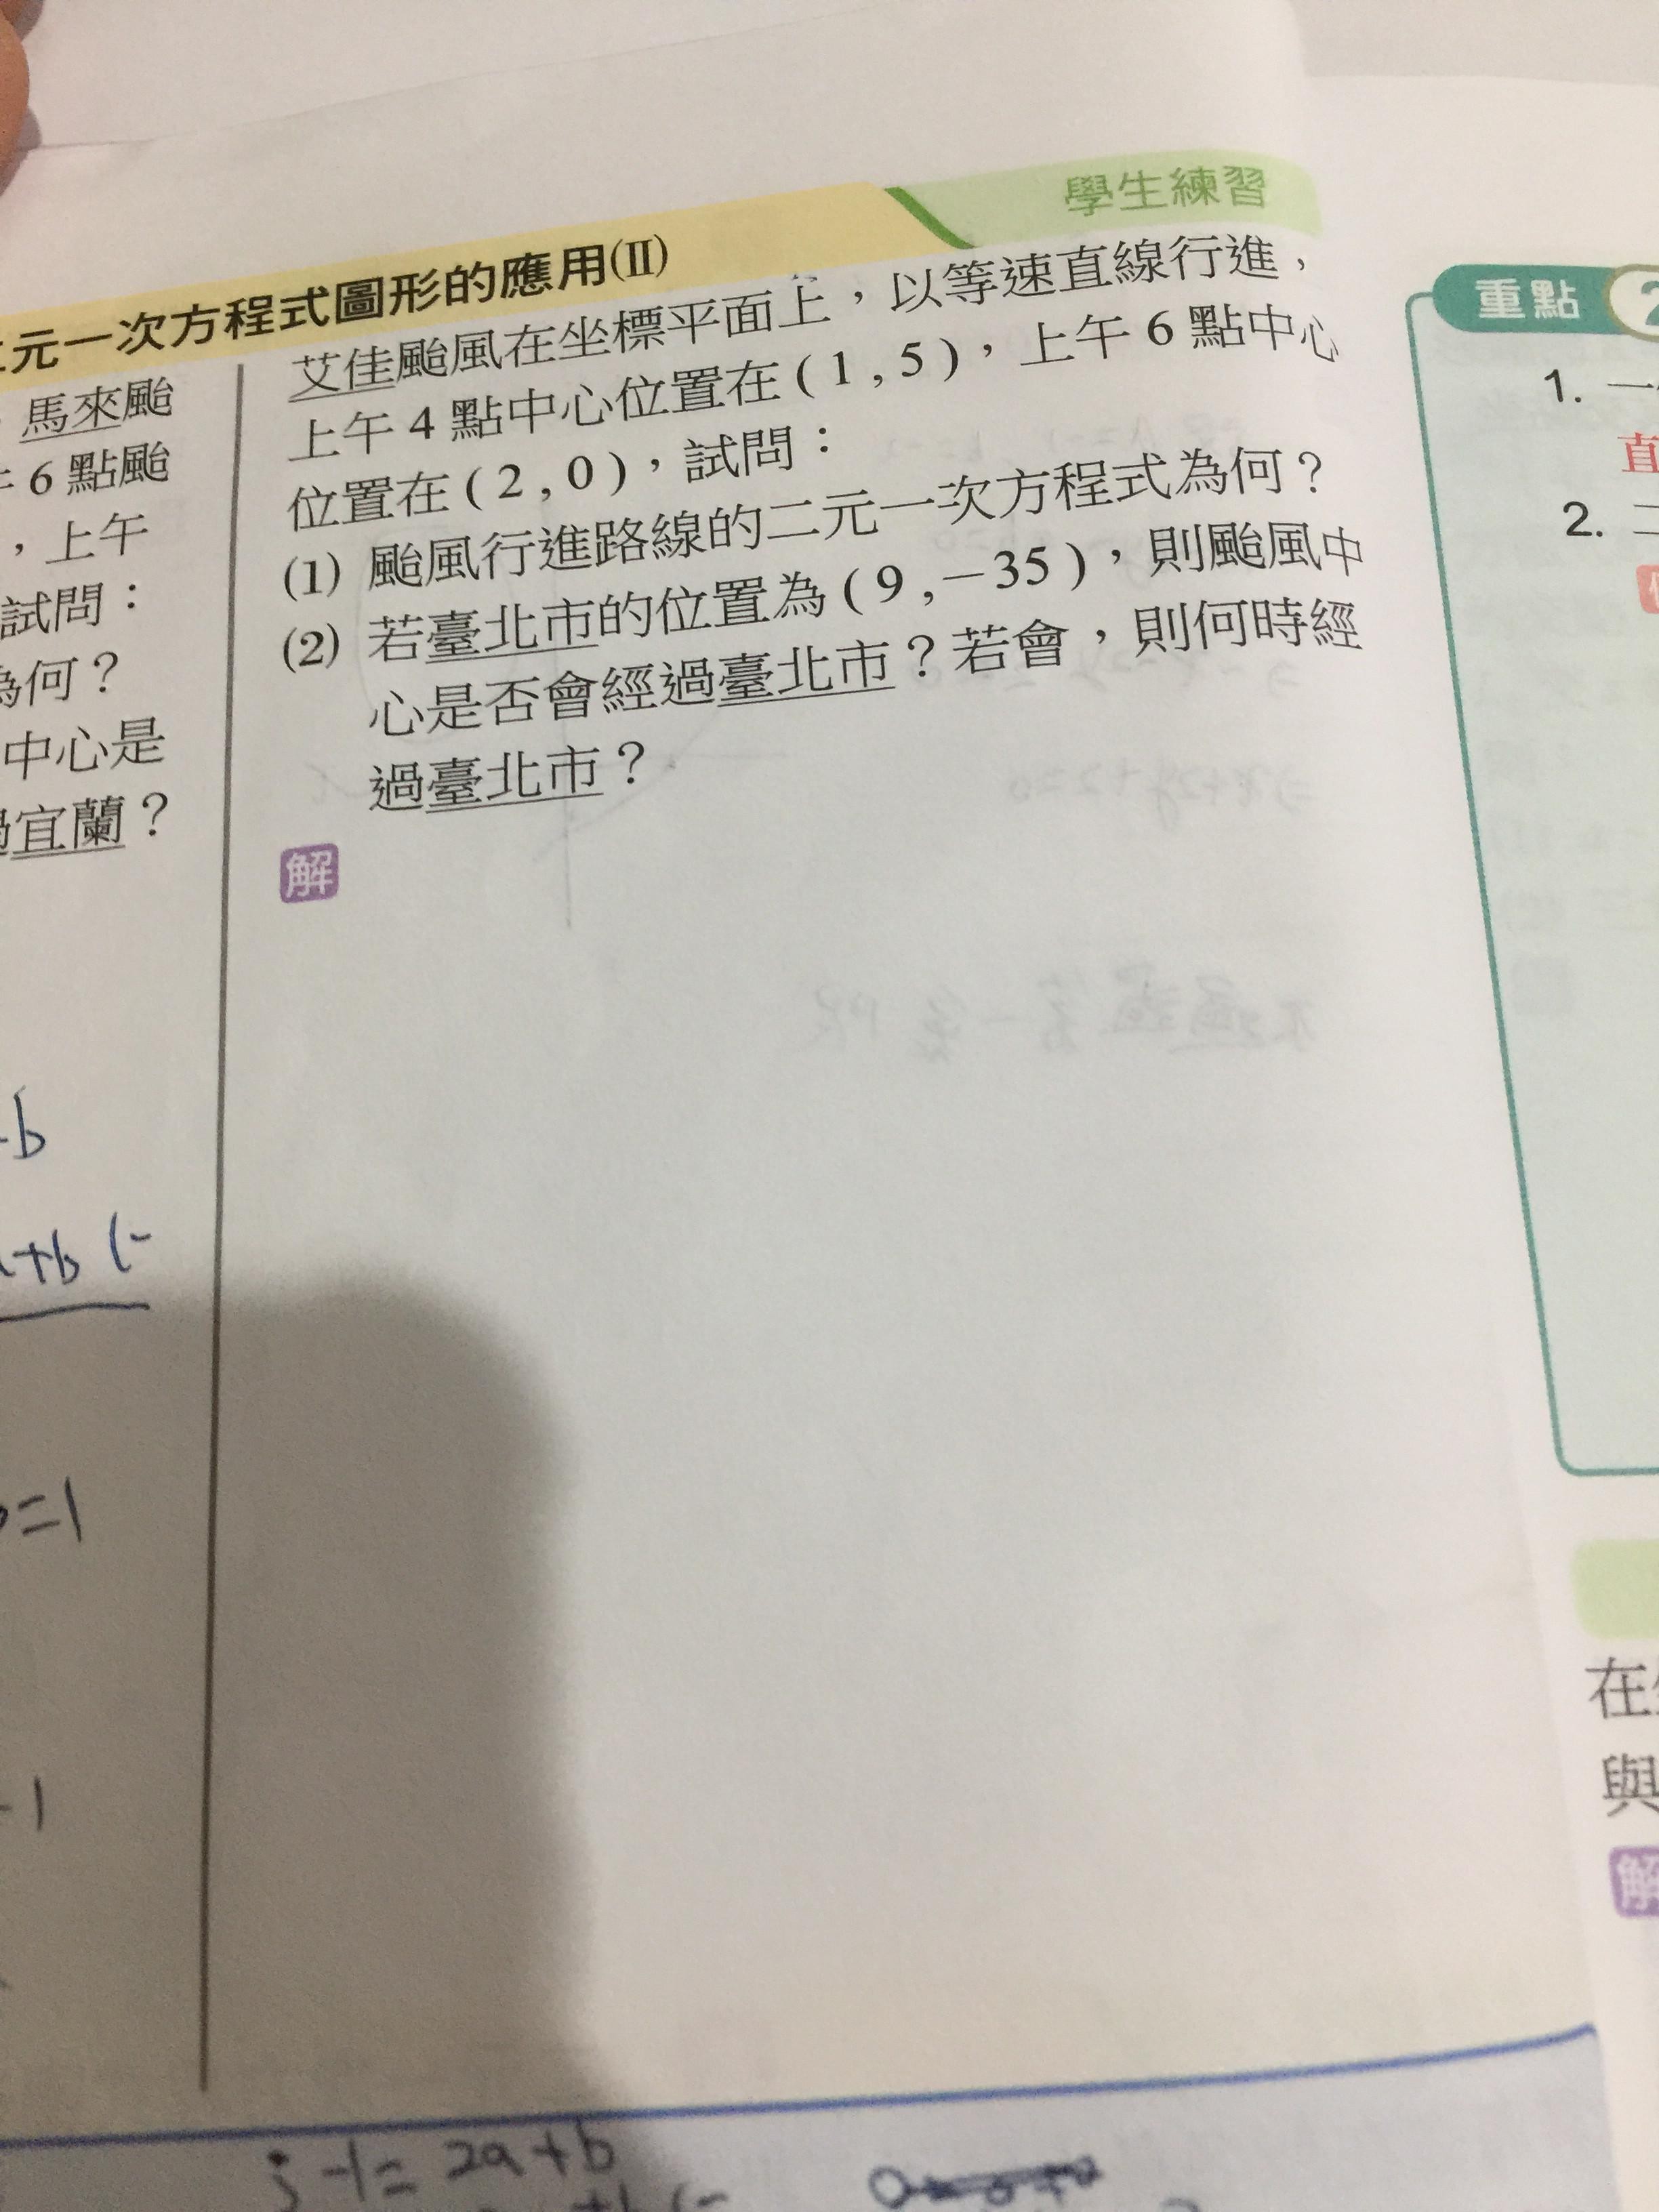 元一次方程式圖形的應用(II)
學生練習
馬來颱
6 點颱
，上午
試問：
為何？
中心是
宜蘭？
b
+b (-
=1
-1
艾佳颱風在坐標平面上，以等速直線行進，
上午 4 點中心位置在 ( 1 , 5 )，上午 6 點中心
位置在 ( 2 , 0 )，試問：
(1) 颱風行進路線的二元一次方程式為何？
(2) 若臺北市的位置為 ( 9 , －35 )，則颱風中
心是否會經過臺北市？若會，則何時經
過臺北市？
解
-1= 2a+b
重點 2
1. 一
直
2. 二
在
與
解